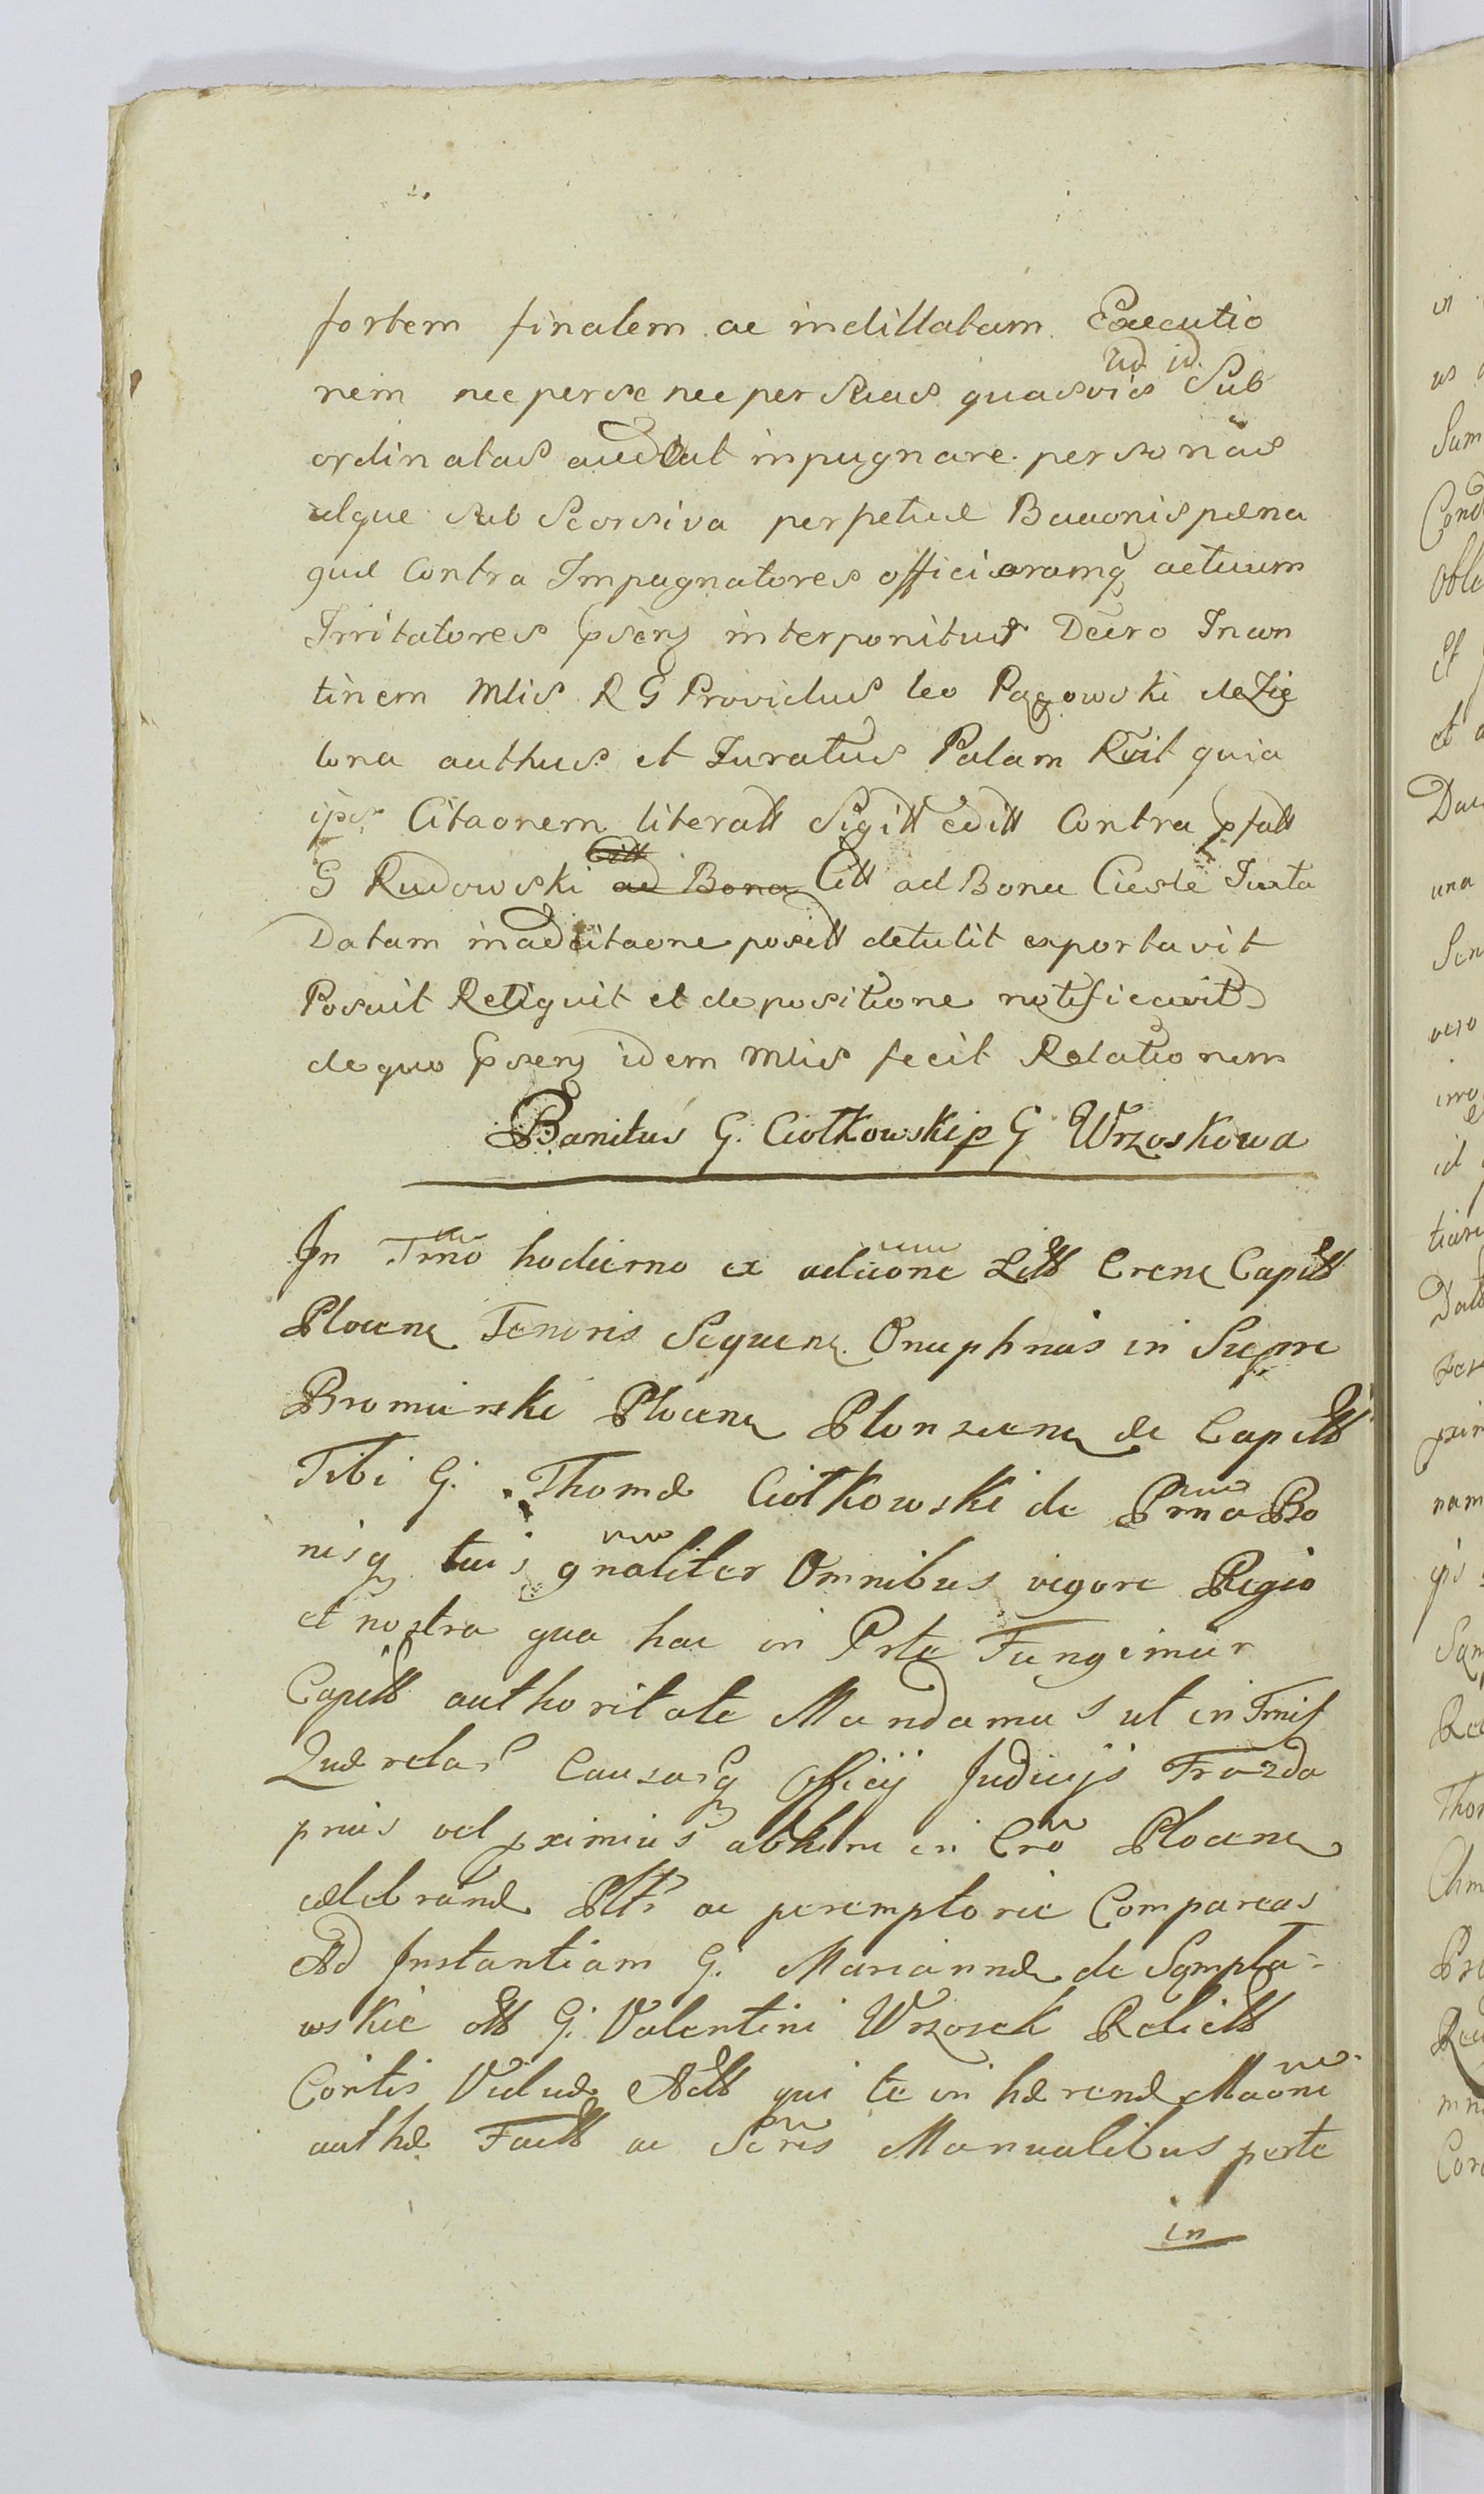 fortem finalem ac indillatam Executio
nem nec per se nec per Suas quasvis ad id Sub
ordinatas audeat inpugnare personas
idque sub Seorsiva perpetuæ Bañonis pæna
quæ Contra Impugnatores officiorumq actuum
Irritatores pseng interponitur Decro Incon
tinem Mlis R G Providus leo Pagowski de Zie
lona authus et Juratus Palam Rvit quia
ips Citaonem literatt Sigitt editt Contra pfatt
G Rudowski ad Bona Citt Citt ad Bona Ciesle Juxta
Datam in ad citaone positt detulit exportavit
Posuit Reliquit et de positione notificavit
de quo pseng idem Mlis fecit Relationem
Banitus G. Ciołkowski p G Wrzoskowa
In Trño hodierno ex adcitaõne Litt Crens Capitt
Plocens Tenoris Sequens Onuphrius in Siepre
Bromierski Plocens Plonscens de Capitt
Tibi G. Thomæ Ciołkowski de Prña Bo
nisq tuis gnãliter Omnibus vigore Regio
et nostra qua hac in Prte Fungimur
Capitt authoritate Mandamus ut in Trnis
Querelar Causarq Officÿ Judicÿs Frazda
prius vel pximius abhinc in Crõ Plocens
celebrand Pltr ac peremptorie Compareas
Ad Instantiam G. Mariannæ de Sempła=
wskie ott G. Valentini Wrzosek Relictt
Contis Viduæ Actt qui te in hærend Maõni
authæ Factt ac Scrĩs Manualibus per te
in